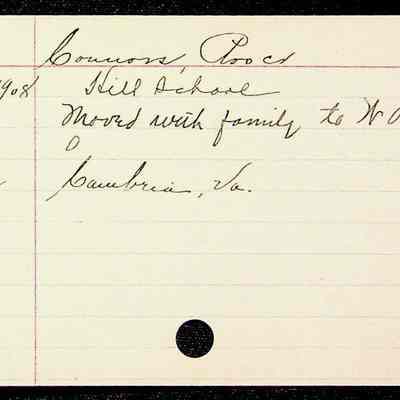 Connors,
1908 Hill School
Moved with family to W
Cambria, Va.